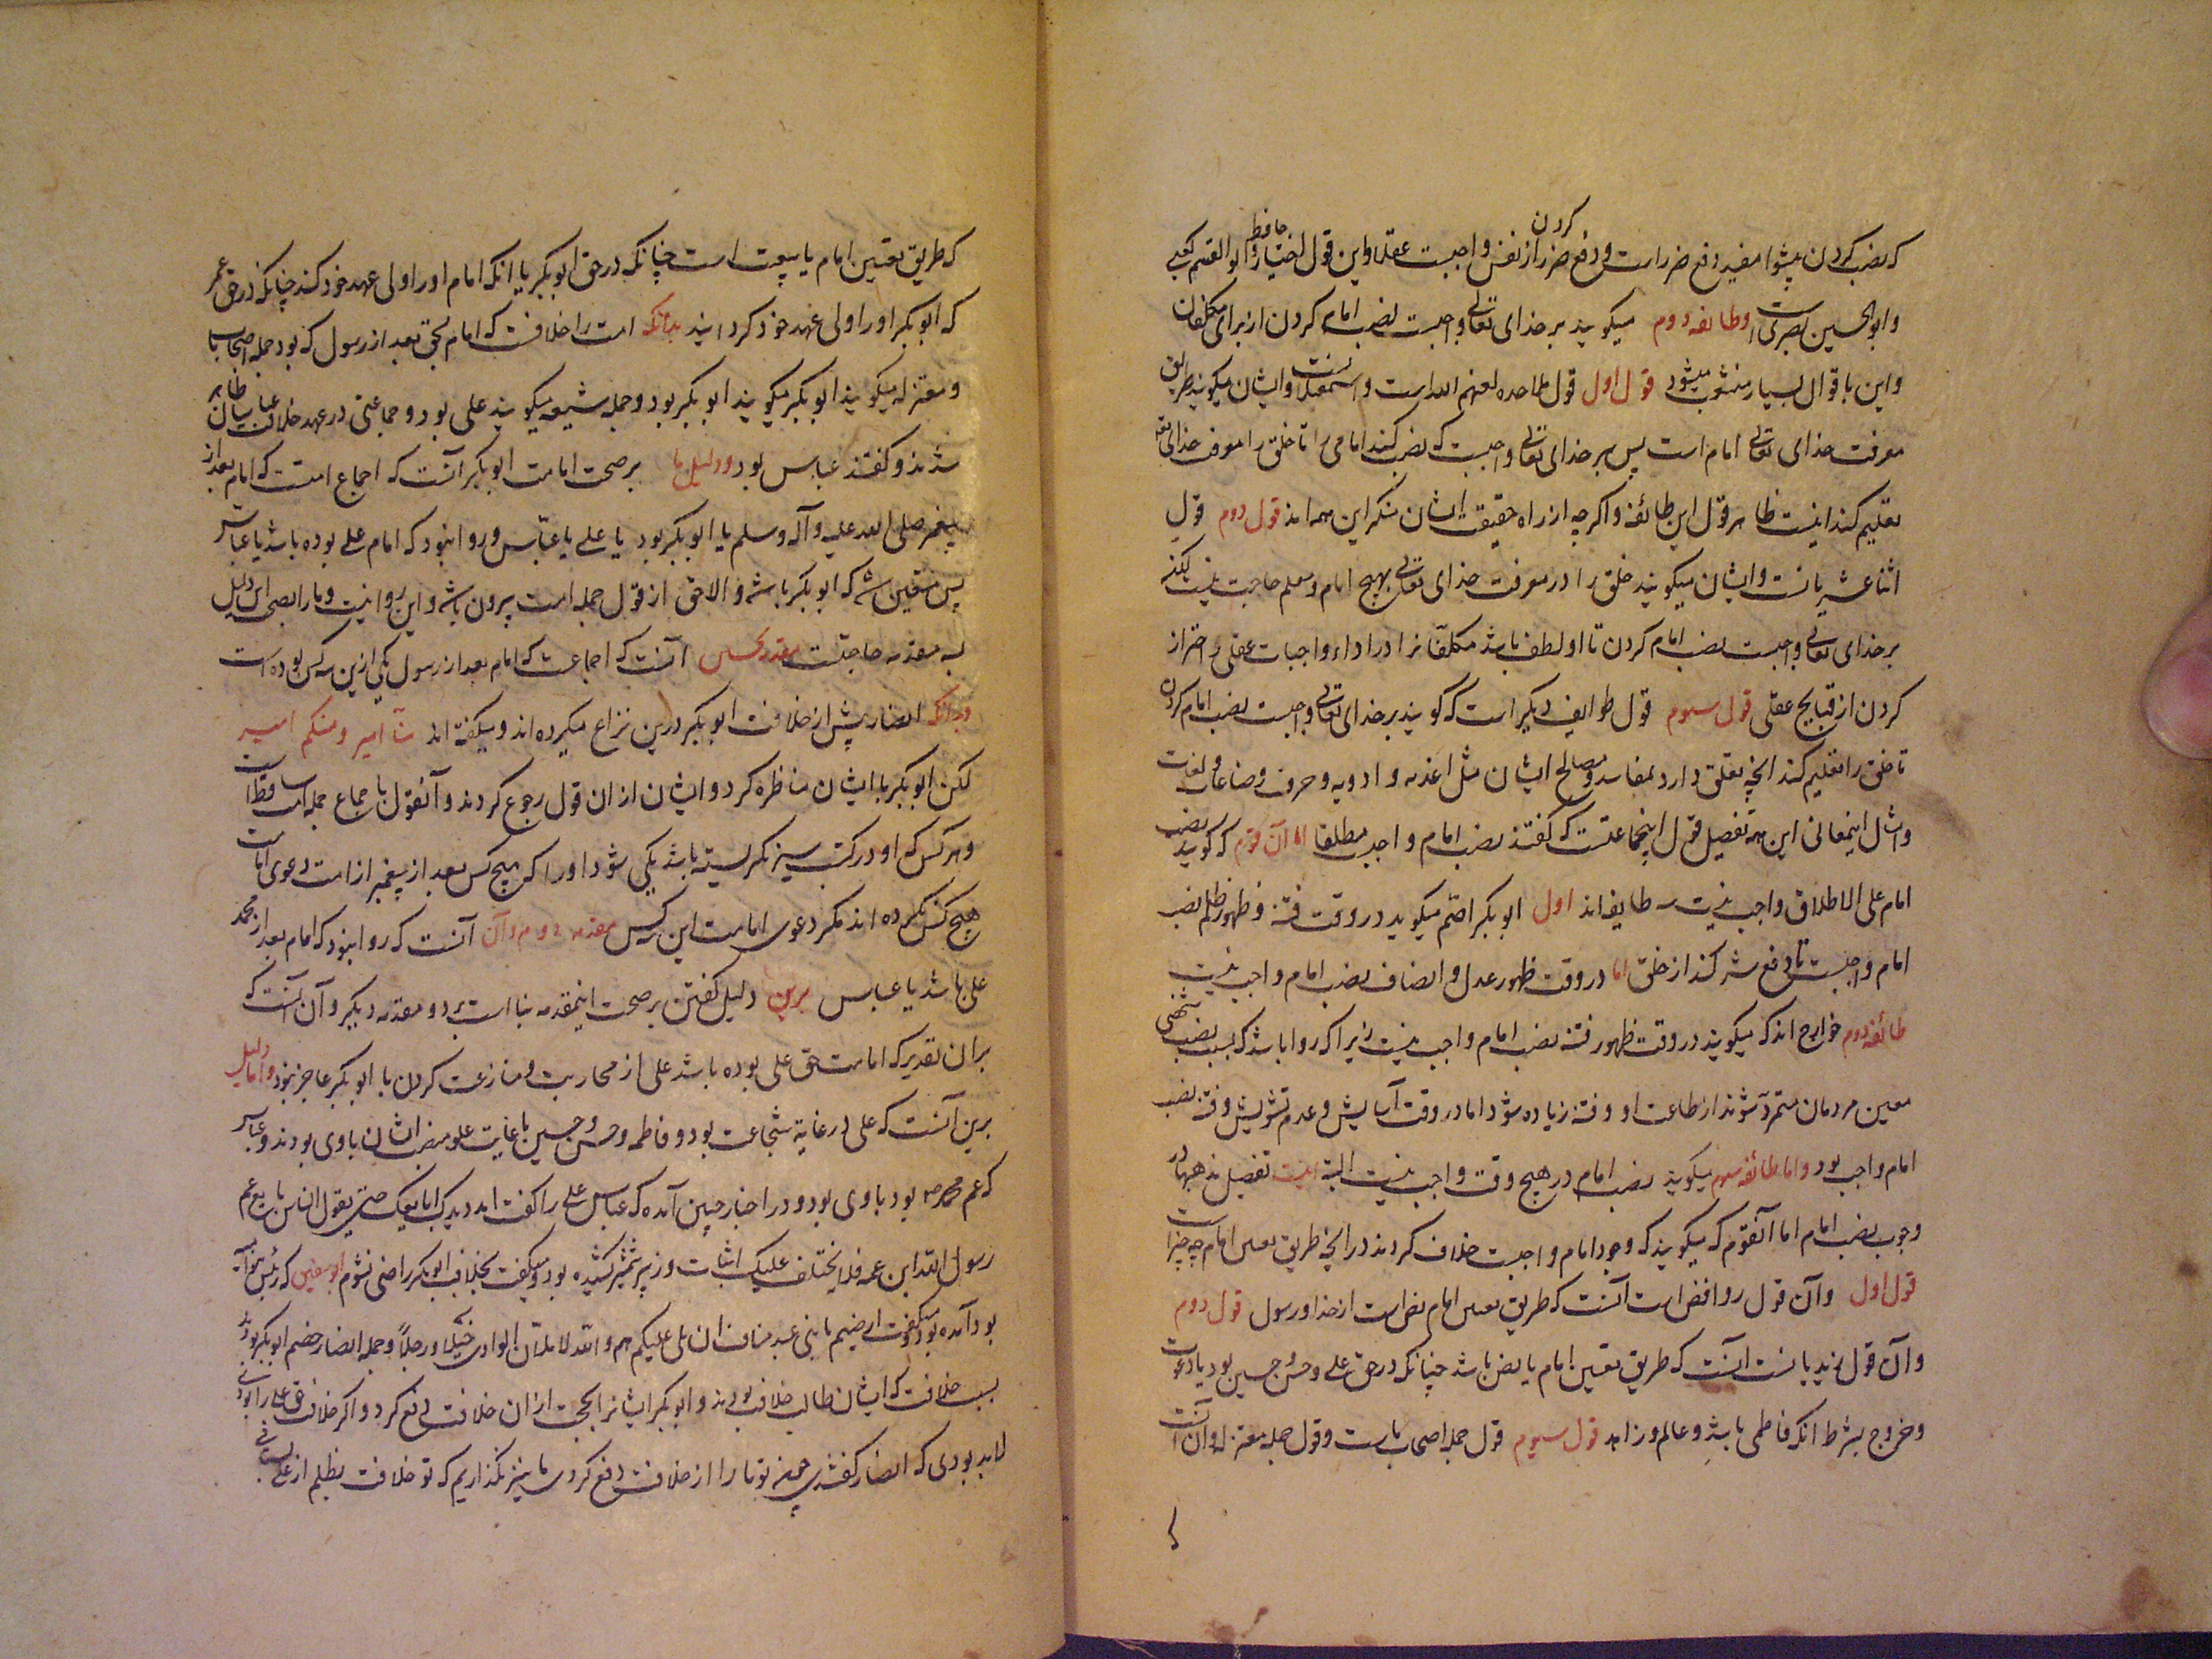 که نصب کردن پیشوا مفید دفع ضرر است و دفع ضرر از نفس واجبست عقلا و این قول اختیار جاحظ و ابو القسم کعبی
و ابوالحسین بصری است وطائفه دوم میکویند بر خدای تعالی واجبست نصب امام کردن از برای مکلفان
و این با قوال بسیار منشعب میشود قول اول قول ملاحده لعنهم الله است و ایشان میکویند طریق
معرفت خدای تعالی امام است پس بر خدای تعالی واجبست که نصب کند امامی را تا خلق را معرفت خدای تعالی
تعلیم کند اینست ظاهر قول این طائفه و اکر چه از راه حقیقت ایشان منکر این همه اند قول دوم قول
اثنا عشریانست و ایشان میکویند خلق را در معرفت خدای تعالی بهیچ امام و معلم حاجت نیست لکن
بر خدای تعالی واجبست نصب امام کردن تا او لطف باشد مکلفانرا در اداء واجبات عقلی و احتراز
کردن از قبایح عقلی قول سیوم قول طوایف دیکر است که کویند بر خدای تعالی واجبست نصب امام کردن
تا خلق را تعلیم کند انچه تعلق دارد بمفاسد و مصالح ایشان مثل اغذیه و ادویه و حرف و صناعات و لغات
و امثال اینمعانی این همه تفصیل قول اینجماعتست که کفتند نصب امام واجب مطلقا اما آن قوم که کویند نصب
امام علی الاطلاق واجب نیست سه طایفه اند اول ابو بکر اصم میکوید در وقت فتنه و ظهور ظلم نصب
امام واجبست تا دفع شر کند از خلق اما در وقت ظهور عدل و انصاف نصب امام واجب نیست
طائفه دوم خوارج اند که میکویند در وقت ظهور فتنه نصب امام واجب نیست زیرا که روا باشد که بسبب نصب شخصی
معین مردمان متمرد شوند از طاعت او و فتنه زیاده شود اما در وقت آسایش و عدم تشویش و فتنه نصب
امام واجب بود و اما طائفه سیوم میکویند نصب امام در هیچ وقت واجب نیست البته اینست تفصیل مذهبها در
وجوب نصب امام اما آنقوم که میکویند که وجود امام واجبست خلاف کردند در آنچه طریق تعیین امام چه چیز است
قول اول و آن قول روافض است آنست که طریق تعیین امام نص است از خدا و رسول قول دوم
و آن قول زیدیانست آنست که طریق تعیین امام یا نص باشد چنانکه در حق علی و حسن و حسین بود یا دعوت
و خروج بشرط آنکه فاطمی باشد و عالم و زاهد قول سیوم قول جمله اصحاب ماست و قول جمله معتزله و آن آنست
که طریق تعیین امام یا بیعت است چنانکه در حق ابو بکر یا انکه امام او را ولی عهد خود کند چنانکه در حق عمر
که ابو بکر او را ولی عهد خود کردانید بدانکه امت را خلافست که امام بحق بعد از رسول که بود جمله اصحاب ما
و معتزله میکویند ابو بکر میکویند ابو بکر بود و جمله شیعه میکویند علی بود و جماعتی در عهد خلافت عباسیان ظاهر
شدند و کفتند عباس بود و دلیل ما بر صحت امامت ابو بکر آنست که اجماع امتست که امام بعد از
پیغمبر صلی الله علیه و آله و سلم یا ابو بکر بود یا علی یا عباس و روا نبود که امام علی بوده باشد یا عباس
پس متعین شد که ابو بکر باشد و الا حق از قول جمله امت بیرون باشد و این روا نیست و ما را بصحت این دلیل
به مقدمه حاجتست آنست که اجماعست که امام بعد از رسول یکی ازین سه کس بوده است
و بدانکه انصار پیش از خلافت ابو بکر درین نزاع میکرده اند و میکفته اند منا امیر و منکم امیر
لکن ابو بکر با ایشان مناظره کرد و ایشان از ان قول رجوع کردند و آنقول با جماع جمله امت ساقط است
و هر کس که او در کتب سیر نکریسته باشد یکی شود او را که هیچ کس بعد از پیغمبر از امت دعوی امامت
هیچ کس نکرده اند مکر دعوی امامت این سه کس مقدمه دوم و آن آنست که روا نبود که امام بعد از محمد
علی باشد یا عباس برین دلیل کفتن بر صحت اینمقدمه بنا است بر دو مقدمه دیکر و آن آنست که
بران تقدیر که امامت حق علی بوده باشد علی از محاربت و منازعت کردن با ابو بکر عاجز نبود و اما دلیل
برین آنست که علی در غایة شجاعت بود و فاطمه و حسن و حسین با غایت علو منصب ایشان با وی بودند و عباس
که عم محمد بود با وی بود و در اخبار چنین آمده که عباس علی را کفت امدد یدک ابایعک حتی یقول الناس بایع عم
رسول الله ابن عمه فلا یختلف علیک اثنان و زبیر شمشیر کشیده بود و میکفت بخلافت ابو بکر راضی نشوم ابو سفین که رئیس بنو امیه
بود آمده بود و میکفت ارضیتم یا بنی عبد مناف ان یلی علیکم تیم و الله لاملان الوادی خیلا و رجلا و جمله انصار خصم ابو بکر بودند
بسبب خلافت که ایشان طالب خلافت بودند و ابو بکر ایشانرا بحجت از ان خلافت دفع کرد و اکر خلافت حق علی را بودی
لابد بودی که انصار کفتندی چون تو ما را از خلافت دفع کردی ما نیز نکذاریم که تو خلافت بظلم از علی بستانی